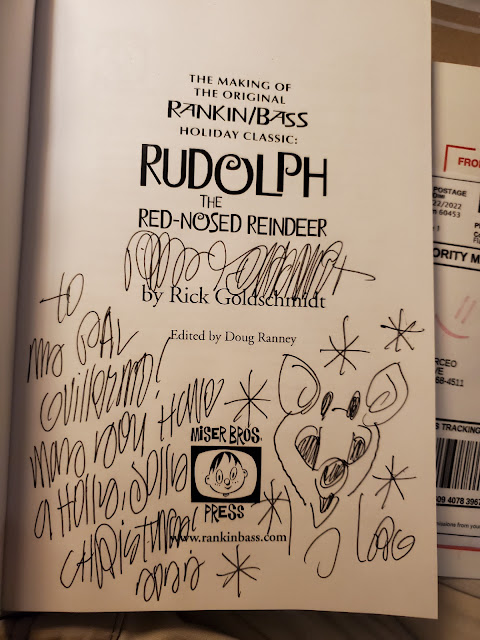 THE MAKING OF
THE ORIGINAL
RANKIN/BASS
HOLIDAY CLASSIC:
RUDOLPH
THE
RED-NOSED REINDEER
by Rick Goldschmidt
Edited by Doug Ranney
to
my PAL
Guillermo!
may you Have
a Holly, Jolly
CHRISTMAS!
MISER BROS.
PRESS
www.rankinbass.com
FRO
POSTAGE
22/2022
60453
ORITY M
RCEO
VE
68-4511
S TRACKING
09 4078 3967